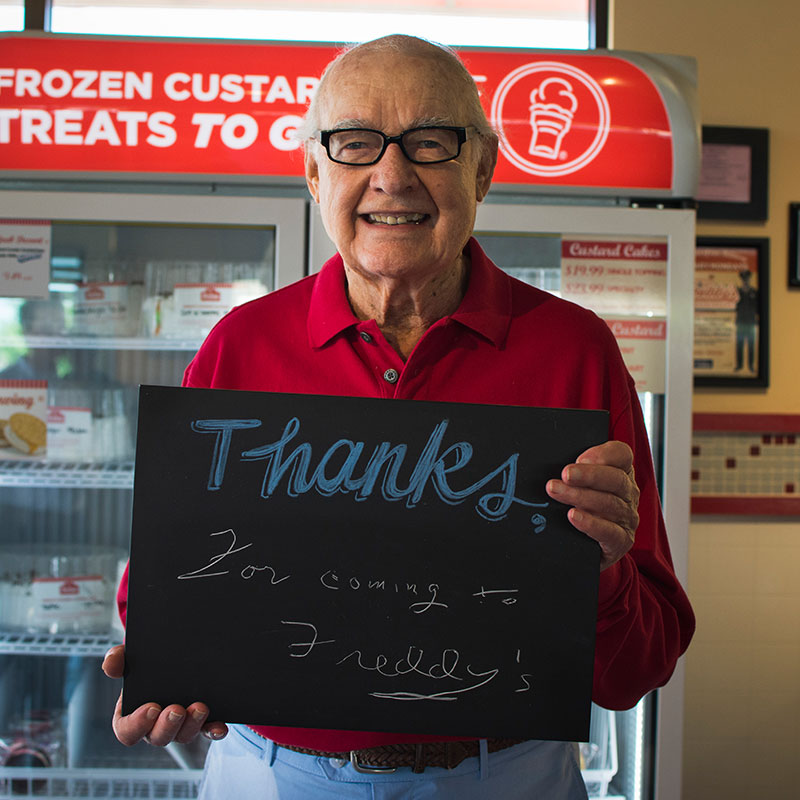 FROZEN CUSTAR
TREATS TO G
Custard Cakes
$19.99 SINGLE TOPPING
Custard
Thanks,
For coming to
Freddy's